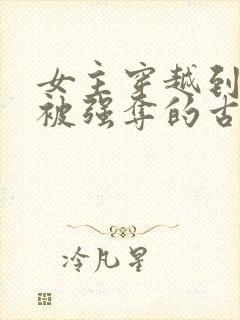 女主穿越到
被强夺的古
冷凡星